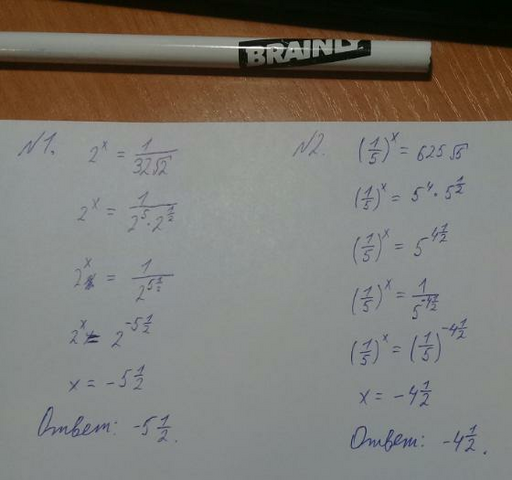 BRAINLY
N1.
2^x = 1/(32√2)
2^x = 1/(2^5 · 2^(1/2))
2^x = 1/(2^(5 1/2))
2^x = 2^(-5 1/2)
x = -5 1/2
Ответ: -5 1/2.
N2.
(1/5)^x = 625√5
(1/5)^x = 5^4 · 5^(1/2)
(1/5)^x = 5^(4 1/2)
(1/5)^x = 1/(5^(-4 1/2))
(1/5)^x = (1/5)^(-4 1/2)
x = -4 1/2
Ответ: -4 1/2.